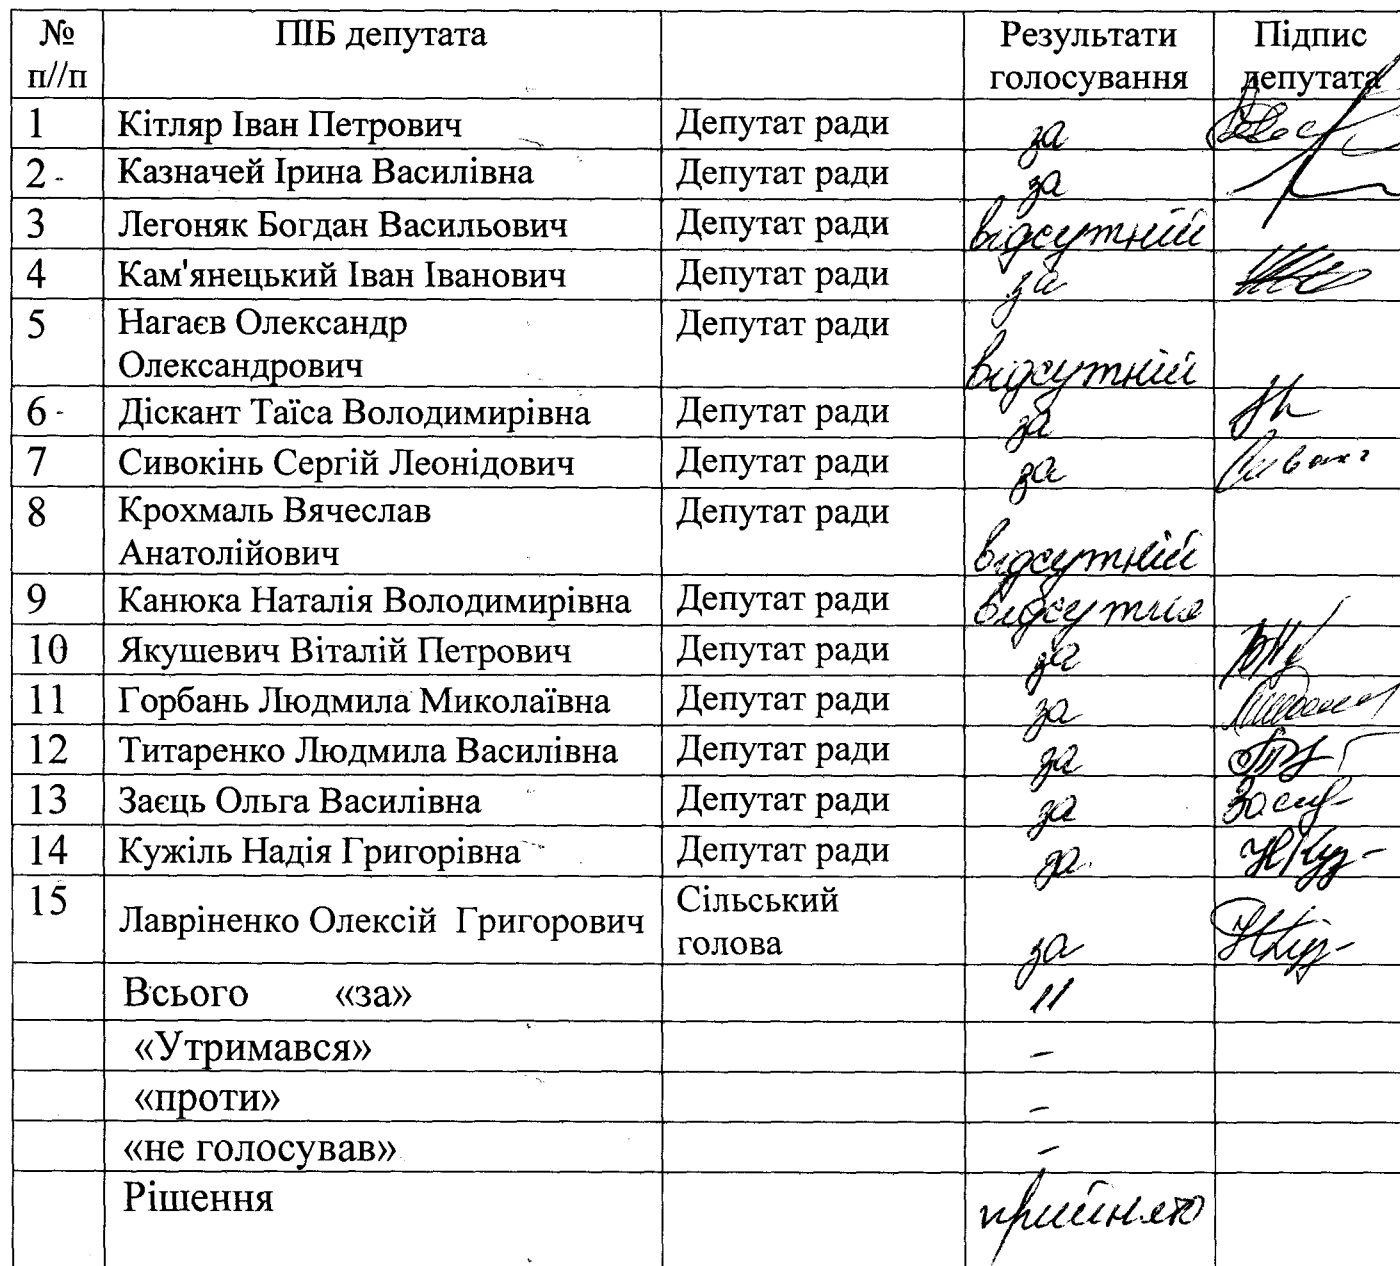 № ПІБ депутата Результати Підпис
п//п голосування депутата
1 Кітляр Іван Петрович Депутат ради за
2 - Казначей Ірина Василівна Депутат ради за
3 Легоняк Богдан Васильович Депутат ради відсутній
4 Кам'янецький Іван Іванович Депутат ради за
5 Нагаєв Олександр Депутат ради
Олександрович відсутній
6 - Діскант Таїса Володимирівна Депутат ради за
7 Сивокінь Сергій Леонідович Депутат ради за
8 Крохмаль Вячеслав Депутат ради
Анатолійович відсутній
9 Канюка Наталія Володимирівна Депутат ради відсутня
10 Якушевич Віталій Петрович Депутат ради за
11 Горбань Людмила Миколаївна Депутат ради за
12 Титаренко Людмила Василівна Депутат ради за
13 Заєць Ольга Василівна Депутат ради за
14 Кужіль Надія Григорівна Депутат ради за
15 Лавріненко Олексій Григорович Сільський
голова за
Всього «за» 11
«Утримався» -
«проти» -
«не голосував» -
Рішення прийнято